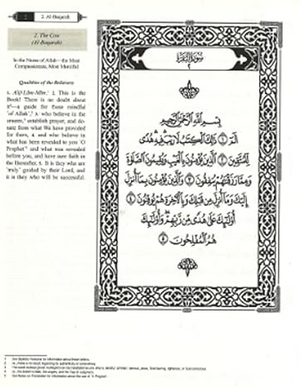 2
2. Al-Baqarah
2. The Cow
(Al-Baqarah)
In the Name of Allah—the Most
Compassionate, Most Merciful
Qualities of the Believers
1. Alif-Lãm-Mĩm. 2. This is the
Book! There is no doubt about
it—a guide for those mindful
of Allah, 3. who believe in the
unseen, establish prayer, and do-
nate from what We have provided
for them, 4. and who believe in
what has been revealed to you ˹O
Prophet˺ and what was revealed
before you, and have sure faith in
the Hereafter. 5. It is they who are
˹truly˺ guided by their Lord, and
it is they who will be successful.
سورة البقرة
بسم الله الرحمن الرحيم
الم ١ ذلك الكتاب لا ريب فيه هدى
للمتقين ٢ الذين يؤمنون بالغيب ويقيمون الصلاة
ومما رزقناهم ينفقون ٣ والذين يؤمنون بما أنزل
إليك وما أنزل من قبلك وبالآخرة هم يوقنون ٤
أولئك على هدى من ربهم وأولئك
هم المفلحون ٥